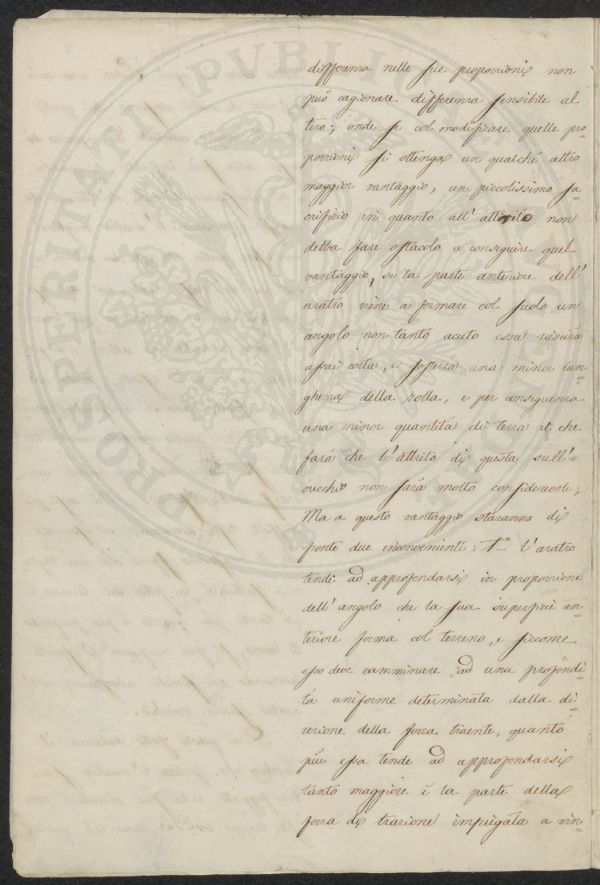 differenza nelle sue proporzioni non
può cagionare differenza sensibile al
tiro; onde se col modificare quelle pro-
porzioni si ottenga un qualche altro
maggior vantaggio, un piccolissimo sa-
crifizio in quanto all' attrito non
debba fare ostacolo a conseguire quel
vantaggio, se la parte anteriore dell'
aratro viene a formare col suolo un
angolo non tanto acuto essa riescirà
assai corta, e sosterrà una minor lun-
ghezza della zolla, e per conseguenza
una minor quantità di terra il che
farà che l' attrito di questa sull'
orecchio non sarà molto considerevole;
Ma a questo vantaggio staranno di
fronte due inconvenienti: 1.º l' aratro
tende ad approfondarsi in proporzione
dell' angolo che la sua superficie an-
teriore forma col terreno, e siccome
esso deve camminare ad una profondi-
tà uniforme determinata dalla di-
rezione della forza traente, quanto
più essa tende ad approfondarsi
tanto maggiore è la parte della
forza di trazione impiegata a vin
PROSPERITATI PUBLICAE